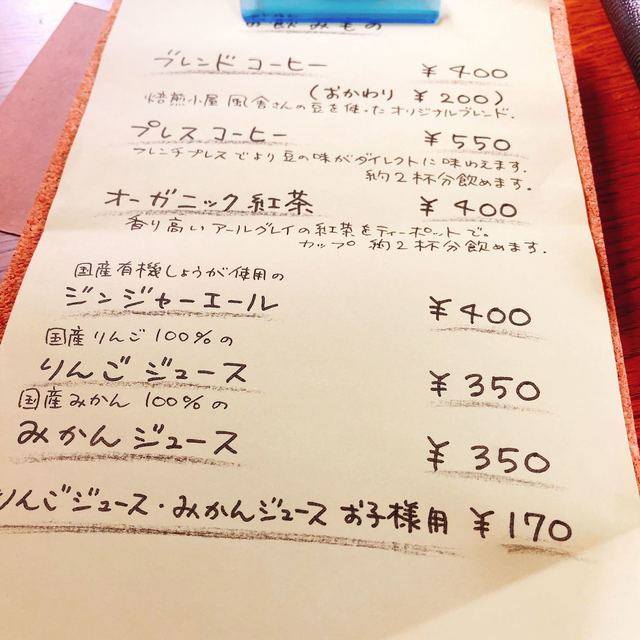 お飲みもの
ブレンドコーヒー ¥400
(おかわり ¥200)
焙煎小屋 風舎さんの豆を使ったオリジナルブレンド.
プレスコーヒー ¥550
フレンチプレスでより豆の味がダイレクトに味わえます.
約2杯分飲めます.
オーガニック紅茶 ¥400
香り高い アールグレイの紅茶をティーポットで。
カップ 約2杯分飲めます.
国産有機しょうが使用の
ジンジャーエール ¥400
国産りんご 100%の
りんごジュース ¥350
国産みかん 100%の
みかんジュース ¥350
りんごジュース・みかんジュース お子様用 ¥170